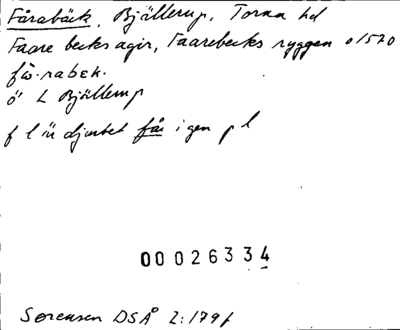 Fårabäck, Bjällerup, Torna hd
Faare becks agir, Faarebecks ryggen o 1570
få·rabɛk.
ö L Bjällerup
f l är djurbet får i gen pl
00026334
Sørensen DSÅ 2:179f